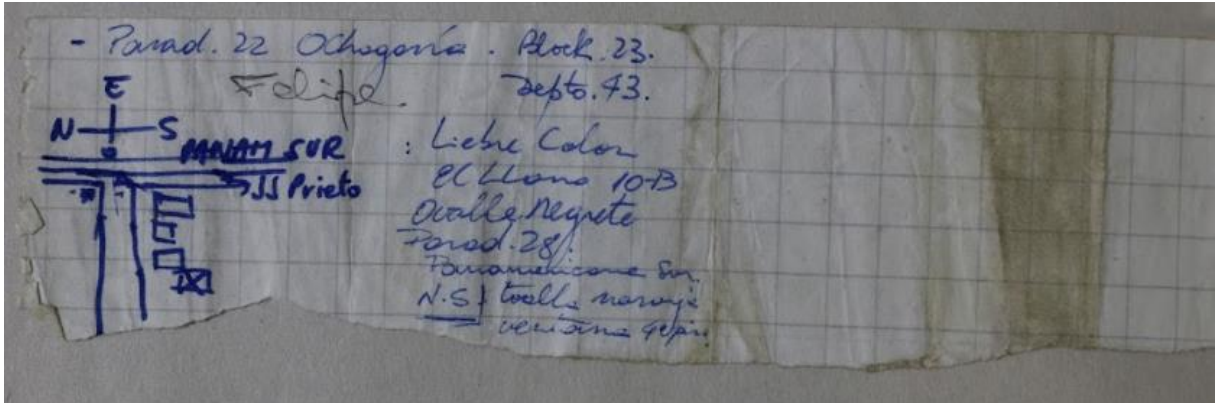 - Parad. 22 Ochagavía. Block. 23.
Felipe. Depto. 43.
E
N S
PANAM SUR
JJ Prieto
: Liebre Colon
El Llano 10-B
Ovalle Negrete
Parad. 28
Panamericana Sur.
N.S toalla naranja
ventana 4º piso